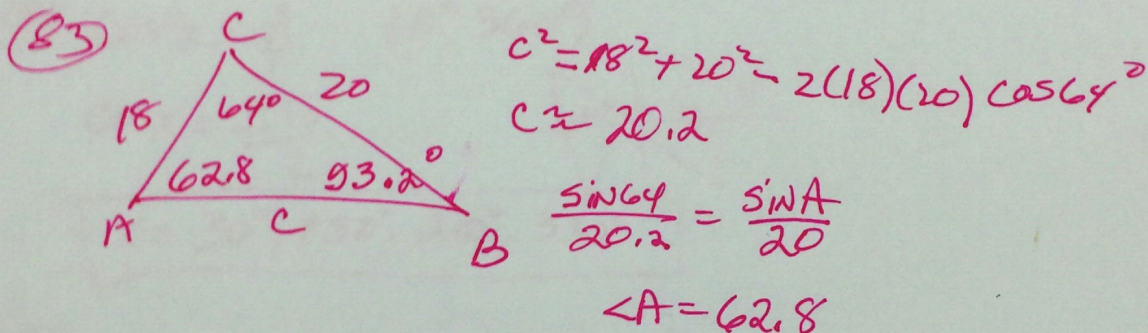 83
C
18
64°
20
62.8
93.2°
A
c
B
c² = 18² + 20² - 2(18)(20) cos64°
c ≈ 20.2
sin64/20.2 = sinA/20
<A = 62.8